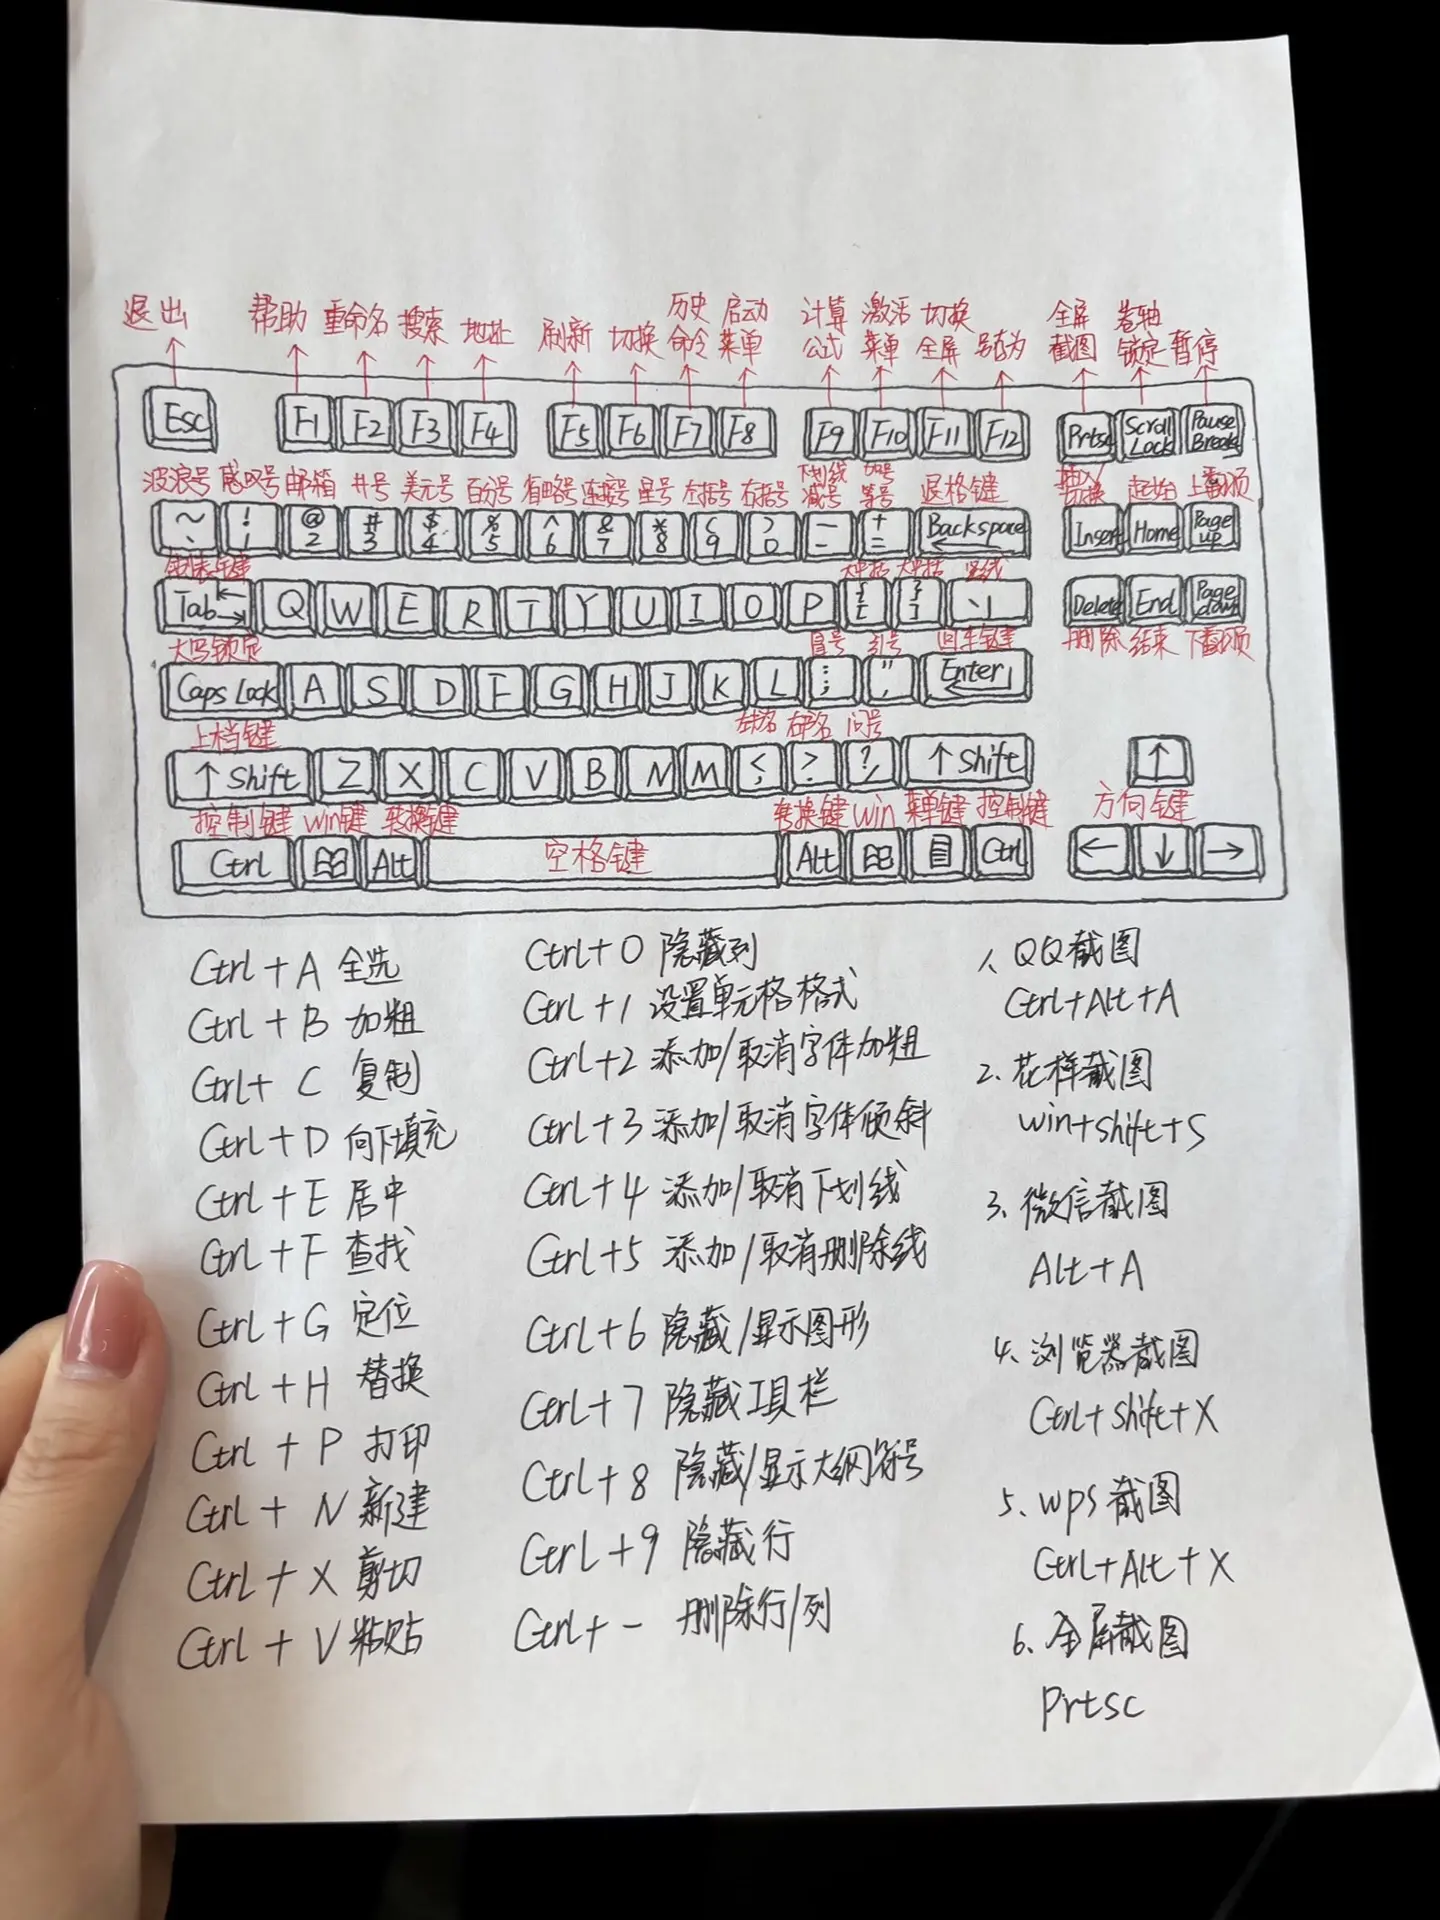 退出 帮助 重命名 搜索 地址 刷新 切换 历史命令 启动菜单 计算公式 激活菜单 切换全屏 另存为 全屏截图 卷轴锁定 暂停
Esc F1 F2 F3 F4 F5 F6 F7 F8 F9 F10 F11 F12 Prtsc Scroll Lock Pause Break
波浪号 感叹号 邮箱 井号 美元号 百分号 省略号 连接号 星号 左括号 右括号 下划线 减号 加号 等号 退格键 插入/切换 起始 上翻页
~ ` ! 1 @ 2 # 3 $ 4 % 5 ^ 6 & 7 * 8 ( 9 ) 0 — - + = Backspace ← Insert Home Page up
制表键 大中括 大中括 竖线
Tab Q W E R T Y U I O P { [ } ] \ | Delete End Page down
大写锁定 冒号 引号 回车键 删除 结束 下翻页
Caps Lock A S D F G H J K L : ; " ' Enter
上档键 左书名 右书名 问号
↑ Shift Z X C V B N M < , > . ? / ↑ Shift ↑
控制键 win键 转换键 转换键 win 菜单键 控制键 方向键
Ctrl Alt 空格键 Alt Ctrl ← ↓ →
Ctrl + A 全选
Ctrl + B 加粗
Ctrl + C 复制
Ctrl + D 向下填充
Ctrl + E 居中
Ctrl + F 查找
Ctrl + G 定位
Ctrl + H 替换
Ctrl + P 打印
Ctrl + N 新建
Ctrl + X 剪切
Ctrl + V 粘贴
Ctrl+0 隐藏列
Ctrl+1 设置单元格格式
Ctrl+2 添加/取消字体加粗
Ctrl+3 添加/取消字体倾斜
Ctrl+4 添加/取消下划线
Ctrl+5 添加/取消删除线
Ctrl+6 隐藏/显示图形
Ctrl+7 隐藏工具栏
Ctrl+8 隐藏/显示大纲符号
Ctrl+9 隐藏行
Ctrl+- 删除行/列
1、QQ截图
Ctrl+Alt+A
2、花样截图
win+shift+S
3、微信截图
Alt+A
4、浏览器截图
Ctrl+shift+X
5、wps截图
Ctrl+Alt+X
6、全屏截图
Prtsc